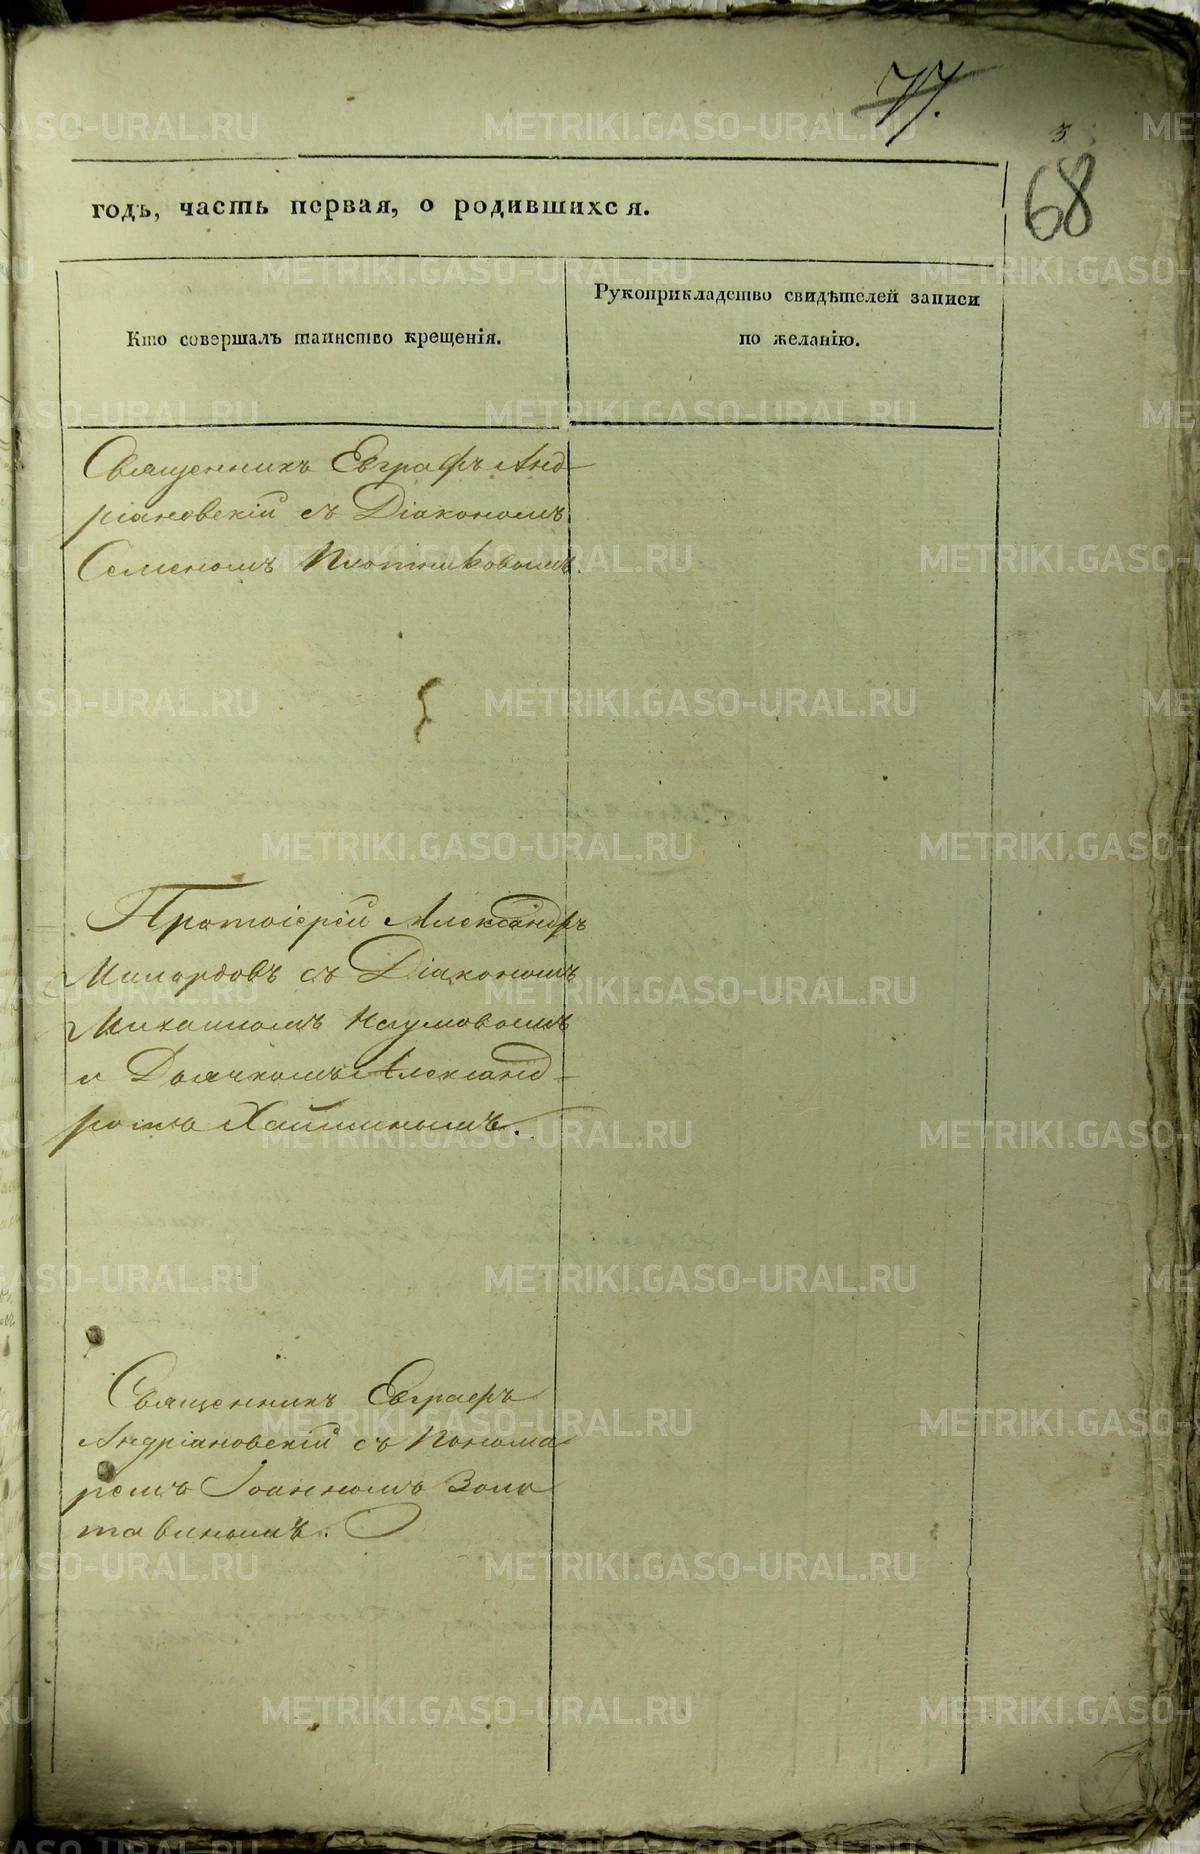 77.
3
68
годъ, часть первая, о родившихся.
Кто совершалъ таинство крещенія.
Рукоприкладство свидѣтелей записи
по желанію.
Священникъ Евграфъ Анд-
ріановскій съ Діакономъ
Семеномъ Плотниковымъ.
Протоіерей Александръ
Милордовъ съ Діакономъ
Михаиломъ Наумовымъ
и Дьячкомъ Александ-
ромъ Хайминымъ.
Священникъ Евграфъ
Андріановскій съ Понома
ремъ Іоанномъ Золо
тавинымъ.
METRIKI.GASO-URAL.RU